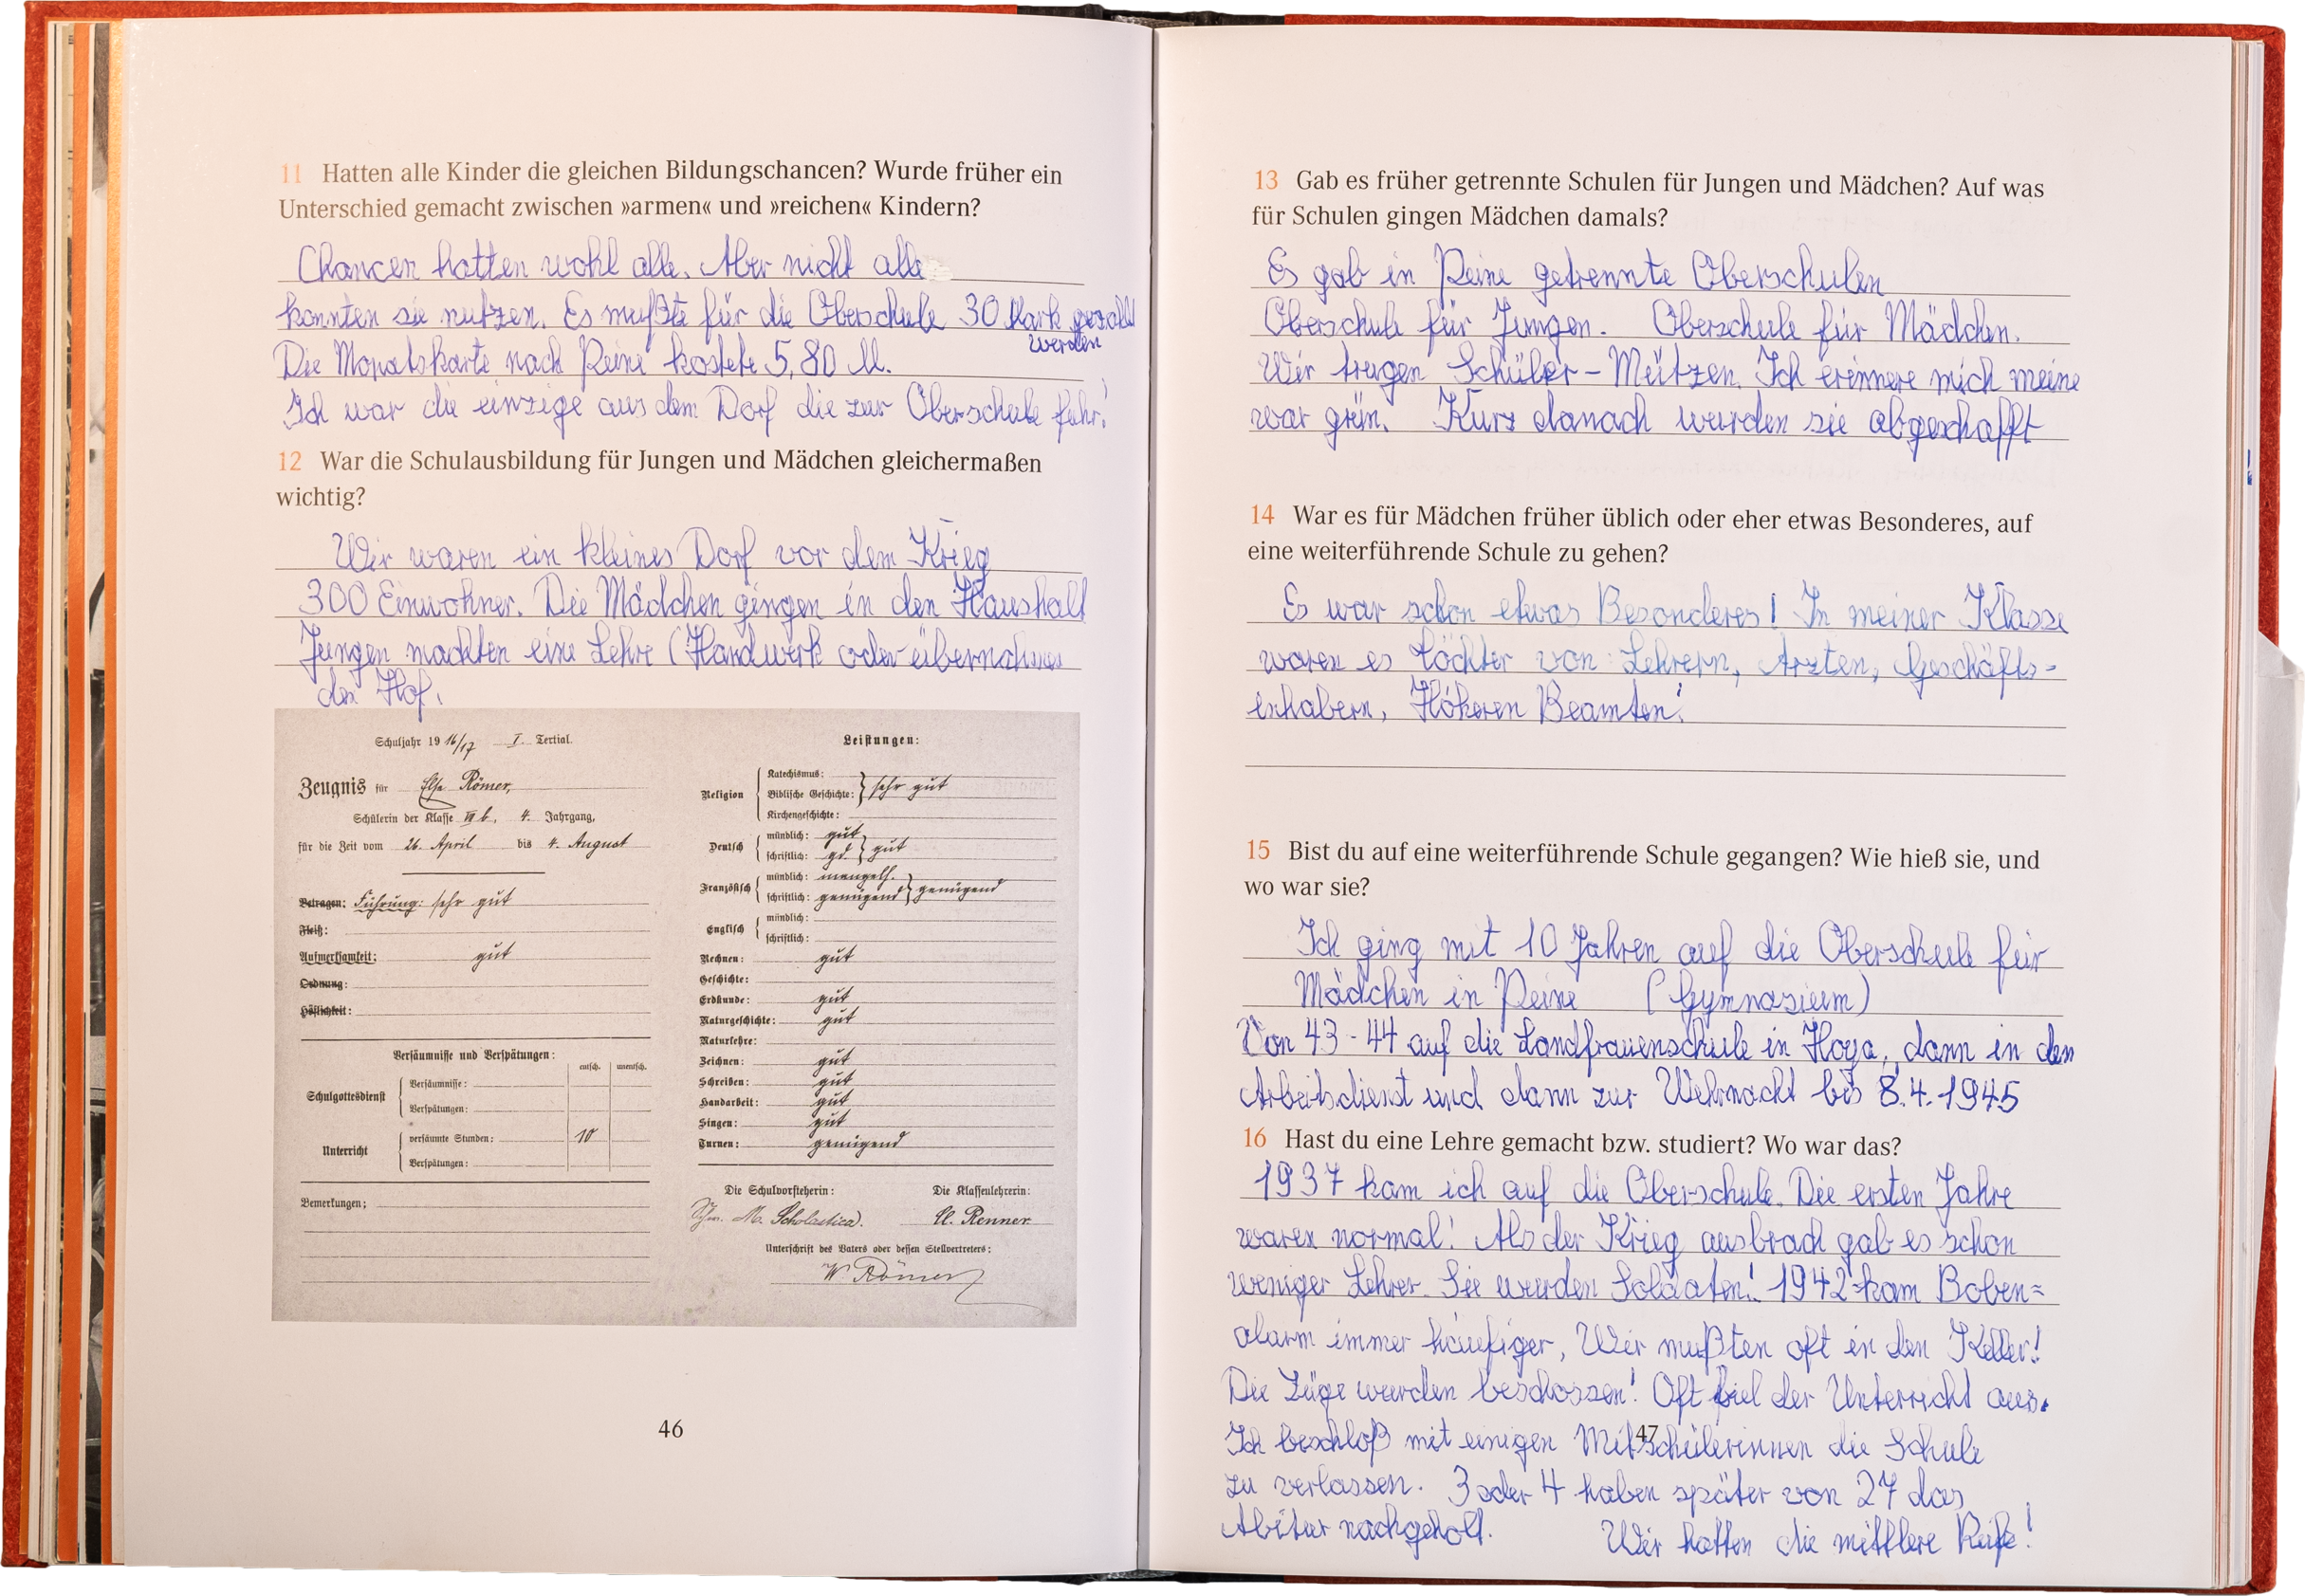 11 Hatten alle Kinder die gleichen Bildungschancen? Wurde früher ein
Unterschied gemacht zwischen »armen« und »reichen« Kindern?
Chancen hatten wohl alle. Aber nicht alle
konnten sie nutzen. Es mußte für die Oberschule 30 Mark gezahlt
werden
Die Monatskarte nach Peine kostete 5,80 M.
Ich war die einzige aus dem Dorf die zur Oberschule fuhr!
12 War die Schulausbildung für Jungen und Mädchen gleichermaßen
wichtig?
Wir waren ein kleines Dorf vor dem Krieg
300 Einwohner. Die Mädchen gingen in den Haushalt
Jungen machten eine Lehre (Handwerk oder übernahmen
den Hof.
Schuljahr 1916/17 I. Tertial.
Zeugnis für Else Römer,
Schülerin der Klasse VII b, 4. Jahrgang,
für die Zeit vom 26. April bis 4. August
Betragen: Führung: sehr gut
Fleiß:
Aufmerksamkeit: gut
Ordnung:
Höflichkeit:
Versäumnisse und Verspätungen:
entsch. unentsch.
Schulgottesdienst
Versäumnisse:
Verspätungen:
Unterricht
versäumte Stunden: 10
Verspätungen:
Bemerkungen:
Leistungen:
Religion
Katechismus:
Biblische Geschichte: sehr gut
Kirchengeschichte:
Deutsch
mündlich: gut
schriftlich: gd. gut
Französisch
mündlich: mangelh.
schriftlich: genügend genügend
Englisch
mündlich:
schriftlich:
Rechnen: gut
Geschichte:
Erdkunde: gut
Naturgeschichte: gut
Naturlehre:
Zeichnen: gut
Schreiben: gut
Handarbeit: gut
Singen: gut
Turnen: genügend
Die Schulvorsteherin: Die Klassenlehrerin:
M. Scholastica. Renner
Unterschrift des Vaters oder dessen Stellvertreters:
W Römer
46
13 Gab es früher getrennte Schulen für Jungen und Mädchen? Auf was
für Schulen gingen Mädchen damals?
Es gab in Peine getrennte Oberschulen
Oberschule für Jungen. Oberschule für Mädchen.
Wir trugen Schüler-Mützen. Ich erinnere mich meine
war grün. Kurz danach wurden sie abgeschafft
14 War es für Mädchen früher üblich oder eher etwas Besonderes, auf
eine weiterführende Schule zu gehen?
Es war schon etwas Besonderes! In meiner Klasse
waren es Töchter von: Lehrern, Ärzten, Geschäfts-
inhabern, Höheren Beamten!
15 Bist du auf eine weiterführende Schule gegangen? Wie hieß sie, und
wo war sie?
Ich ging mit 10 Jahren auf die Oberschule für
Mädchen in Peine (Gymnasium)
Von 43-44 auf die Landfrauenschule in Hoya, dann in den
Arbeitsdienst und dann zur Wehrmacht bis 8.4.1945
16 Hast du eine Lehre gemacht bzw. studiert? Wo war das?
1937 kam ich auf die Oberschule. Die ersten Jahre
waren normal! Als der Krieg ausbrach gab es schon
weniger Lehrer. Sie wurden Soldaten! 1942 kam Boben=
alarm immer häufiger, Wir mußten oft in den Keller!
Die Züge wurden beschossen! Oft fiel der Unterricht aus.
Ich beschloß mit einigen Mitschülerinnen die Schule
47
zu verlassen. 3 oder 4 haben später von 27 das
Abitur nachgeholt. Wir hatten die mittlere Reife!